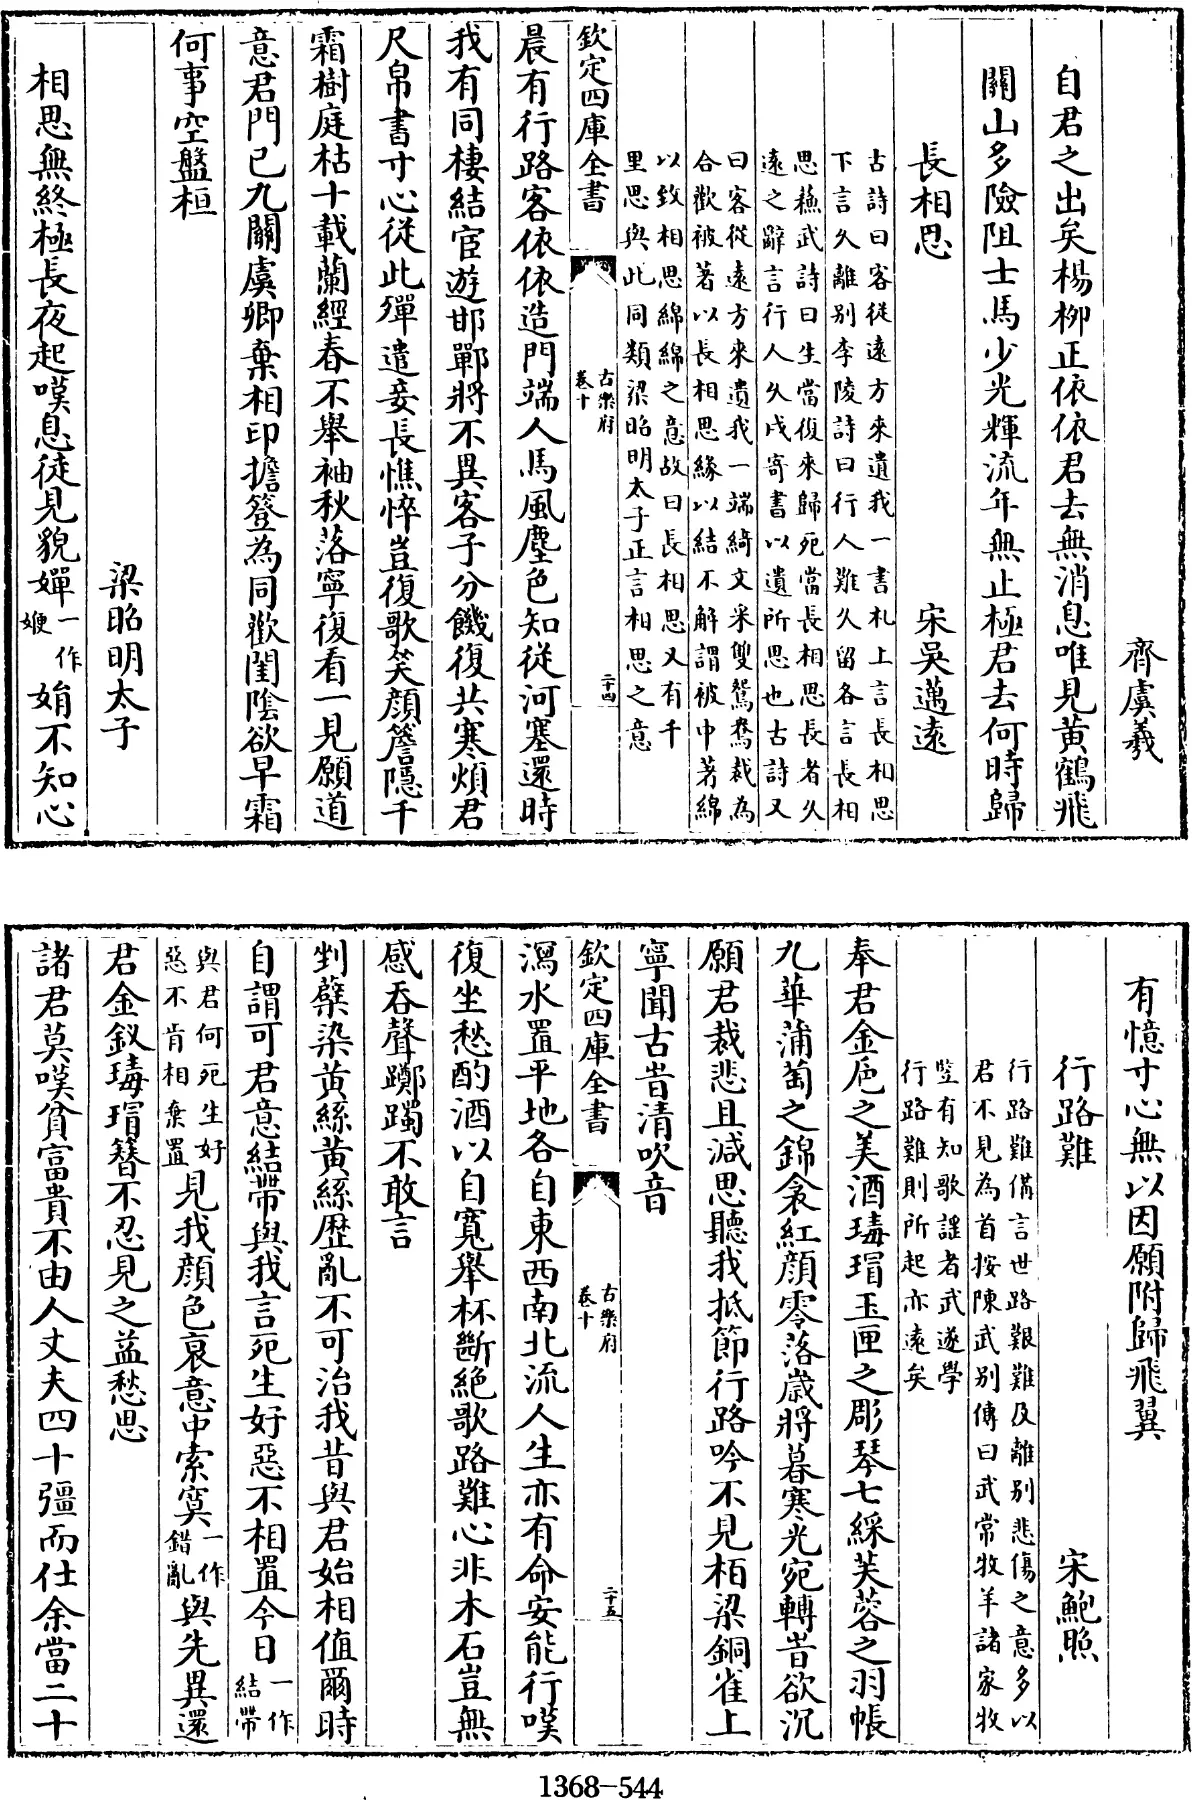 齊虞羲
自君之出矣楊柳正依依君去無消息唯見黄鶴飛
關山多險阻士馬少光輝流年無止極君去何時歸
長相思 宋吳邁遠
古詩曰客從遠方來遺我一書札上言長相思
下言久離別李陵詩曰行人難久留各言長相
思蘇武詩曰生當復來歸死當長相思長者久
遠之辭言行人久戍寄書以遺所思也古詩又
曰客從遠方來遺我一端綺文采雙鴛鴦裁為
合歡被著以長相思緣以結不解謂被中著綿
以致相思綿綿之意故曰長相思又有千
里思與此同類梁昭明太子正言相思之意
欽定四庫全書 古樂府 卷十 二十四
晨有行路客依依造門端人馬風塵色知從河塞還時
我有同棲結宦遊邯鄲將不異客子分饑復共寒煩君
尺帛書寸心從此殫遣妾長憔悴豈復歌笑顔簷隱千
霜樹庭枯十載蘭經春不舉袖秋落寧復看一見願道
意君門已九關虞卿棄相印擔簦為同歡閨陰欲早霜
何事空盤桓
梁昭明太子
相思無終極長夜起嘆息徒見貌嬋一作㛹娟不知心
有憶寸心無以因願附歸飛翼
行路難 宋鮑照
行路難備言世路艱難及離別悲傷之意多以
君不見為首按陳武別傳曰武常牧羊諸家牧
豎有知歌謡者武遂學
行路難則所起亦遠矣
奉君金巵之美酒瑇瑁玉匣之彫琴七綵芙蓉之羽帳
九華蒲萄之錦衾紅顔零落歳將暮寒光宛轉旹欲沉
願君裁悲且減思聽我抵節行路吟不見柏梁銅雀上
寧聞古旹清吹音
欽定四庫全書 古樂府 卷十 二十五
瀉水置平地各自東西南北流人生亦有命安能行嘆
復坐愁酌酒以自寬舉杯斷絶歌路難心非木石豈無
感吞聲躑躅不敢言
剉蘗染黄絲黄絲歴亂不可治我昔與君始相值爾時
自謂可君意結帶與我言死生好惡不相置今日一作結帶
與君何死生好惡不肯相棄置見我顔色衰意中索寞一作錯亂與先異還
君金釵瑇瑁簪不忍見之益愁思
諸君莫嘆貧富貴不由人丈夫四十彊而仕余當二十
1368-544